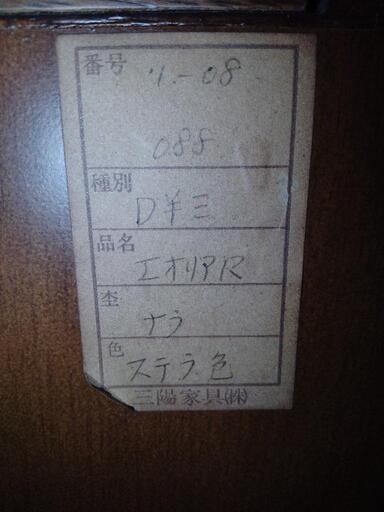 番号 11-08
088
種別
D半三
品名
エオリアR
杢
ナラ
色
ステラ色
三陽家具(株)